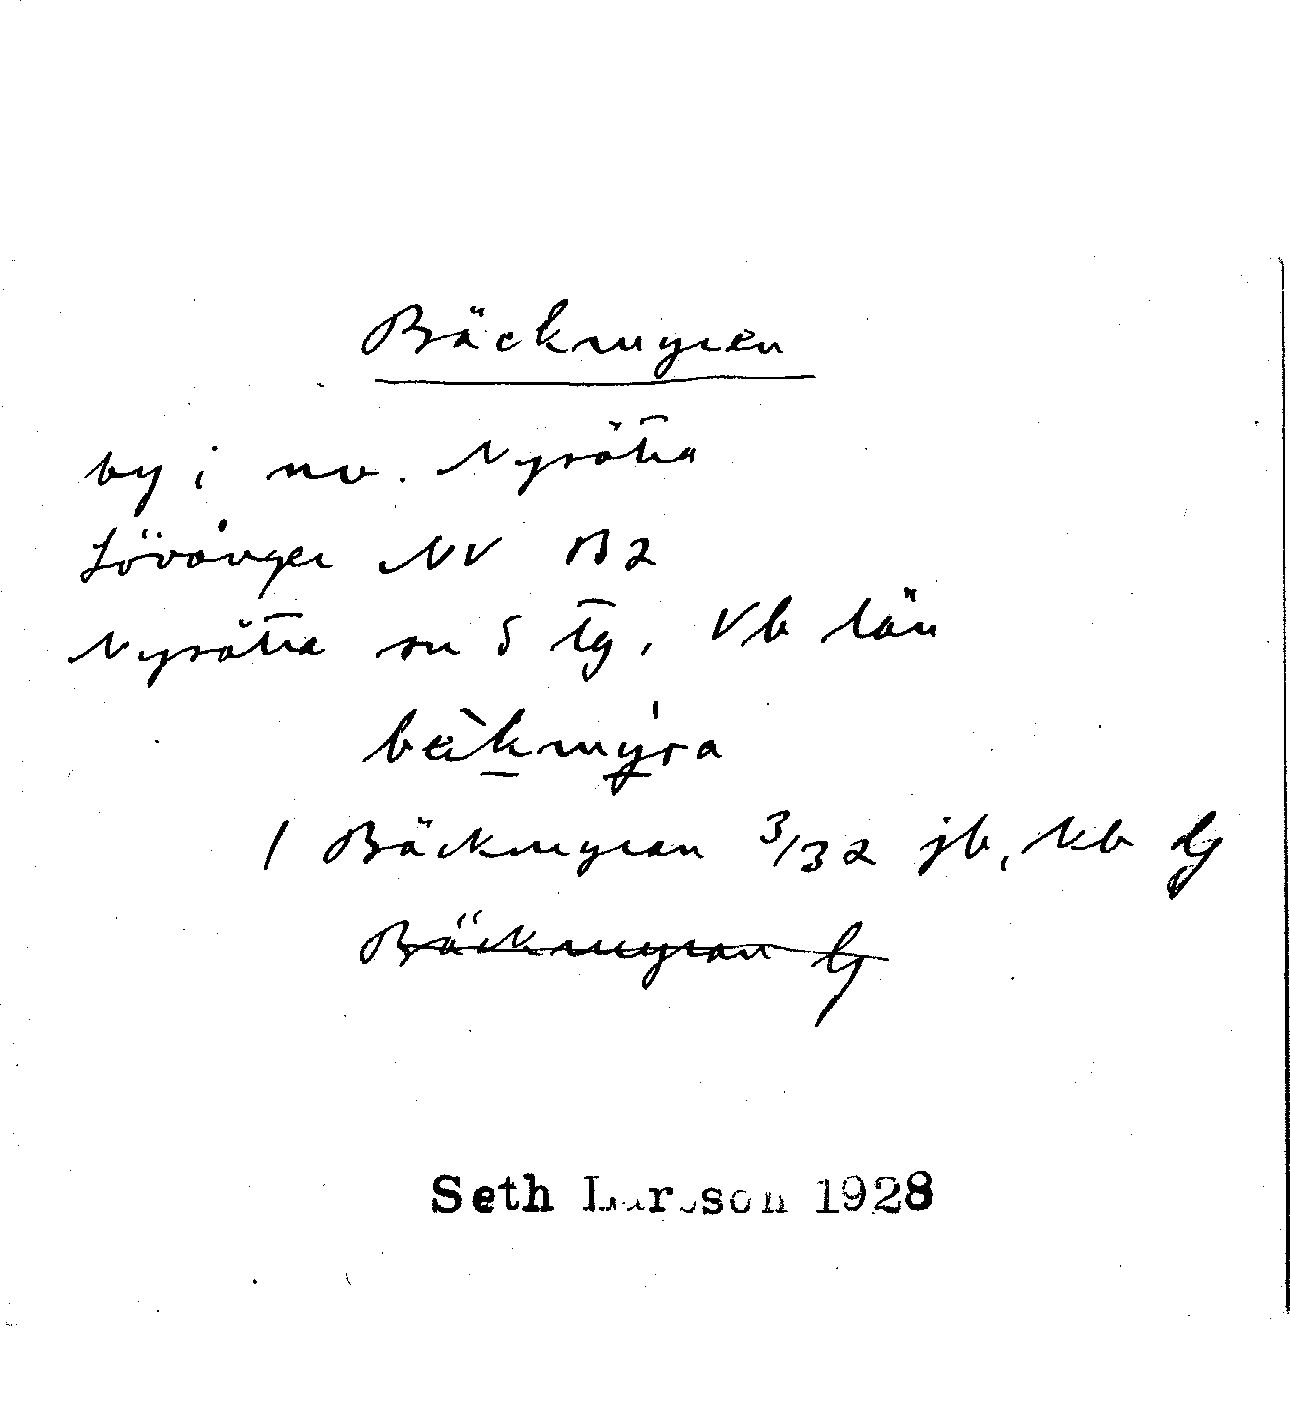 Bäckmyren
by i nv. Nysätra
Lövånger NV B2
Nysätra sn S tg, Vb län
bäkmyra
1 Bäckmyran 3/32 jb, kb
Bäckmyran
Seth Larsson 1928